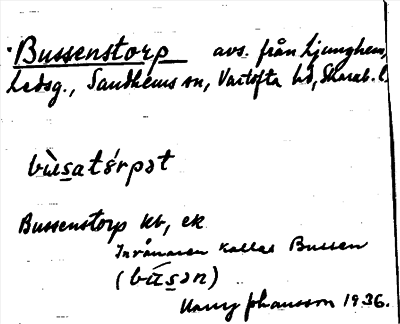 Bussenstorp avs. från Ljunghem,
Ledsg., Sandhems sn, Vartofta hd, Skarab. l.
bùsatórpət
Bussenstorp kt, ek
Invånaren kallas Bussen
(bùsən)
Harry Johansson 1936.